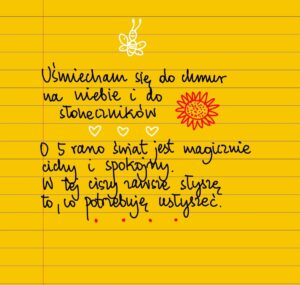 Uśmiecham się do chmur
na niebie i do
słoneczników
O 5 rano świat jest magicznie
cichy i spokojny.
W tej ciszy zawsze słyszę
to, co potrzebuję usłyszeć.